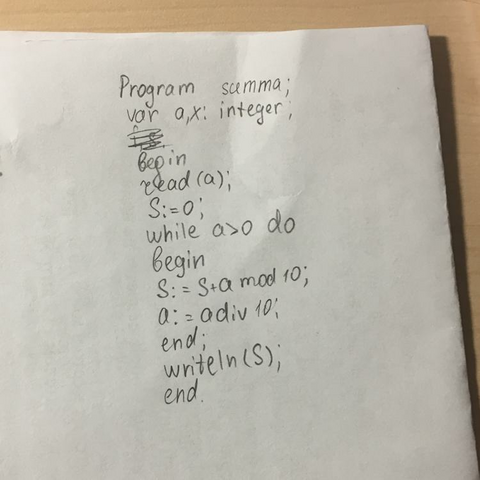 Program summa;
var a,x: integer;
begin
read(a);
S:=0;
while a>0 do
begin
S:= S+a mod 10;
a:= a div 10;
end;
writeln(S);
end.